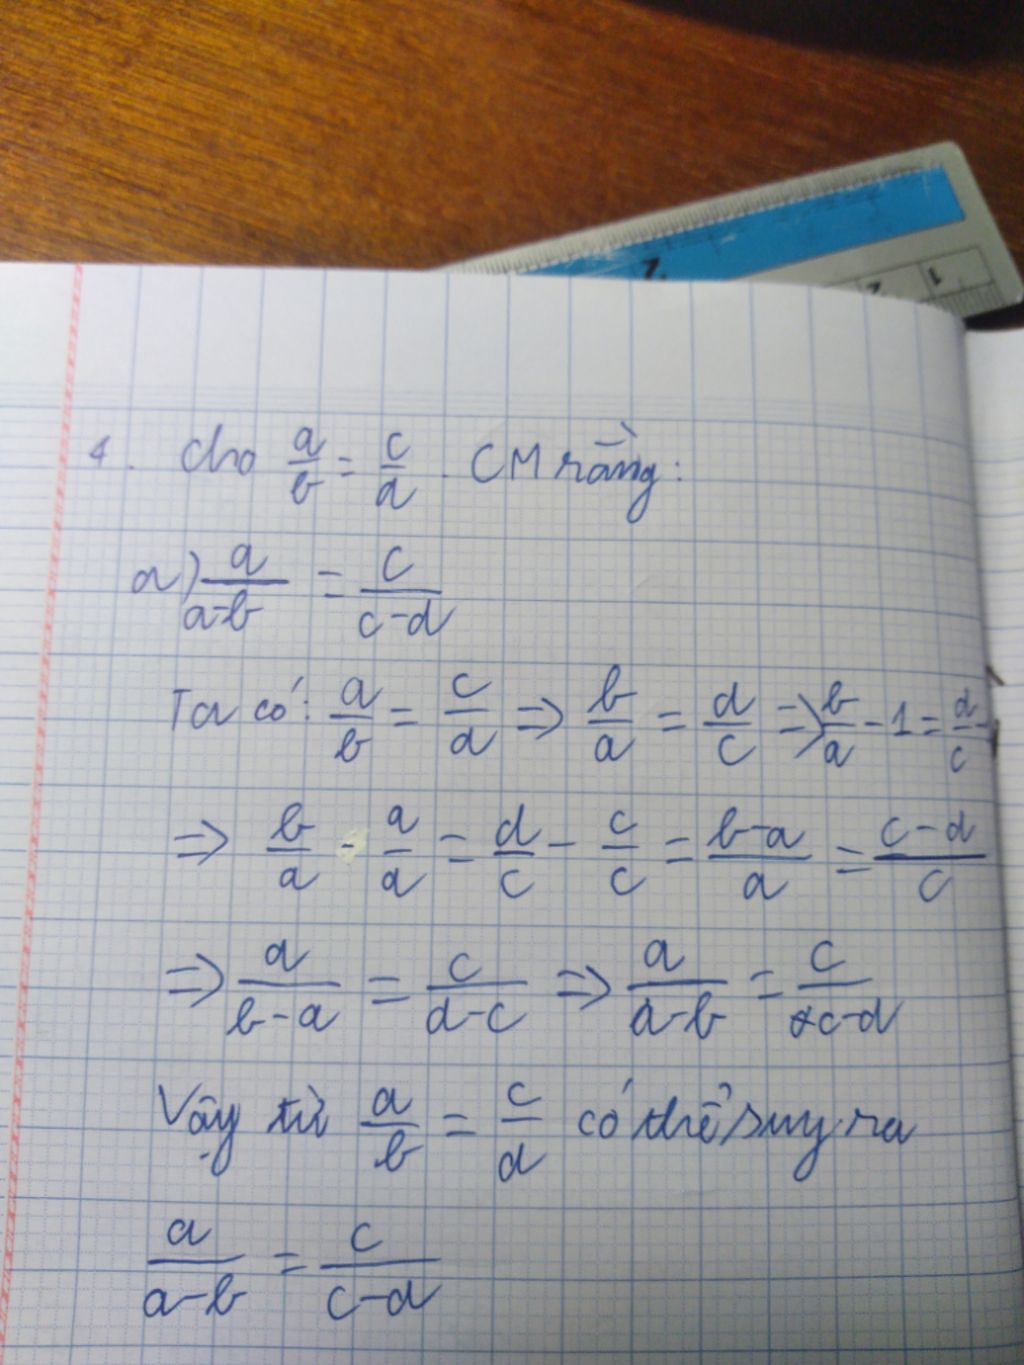 4. Cho a/b = c/d. CM rằng:
a) a/(a-b) = c/(c-d)
Ta có: a/b = c/d => b/a = d/c => b/a - 1 = d/c -
=> b/a - a/a = d/c - c/c = (b-a)/a = (c-d)/c
=> a/(b-a) = c/(d-c) => a/(a-b) = c/(c-d)
Vậy từ a/b = c/d có thể suy ra
a/(a-b) = c/(c-d)